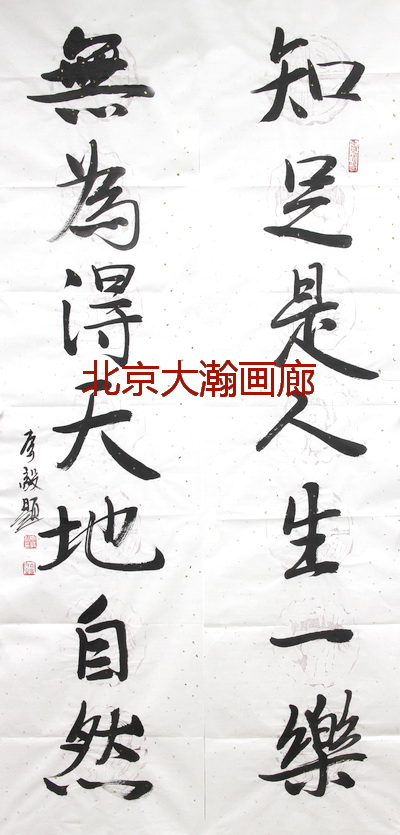 知足是人生一樂
無為得天地自然
李毅題
北京大瀚画廊